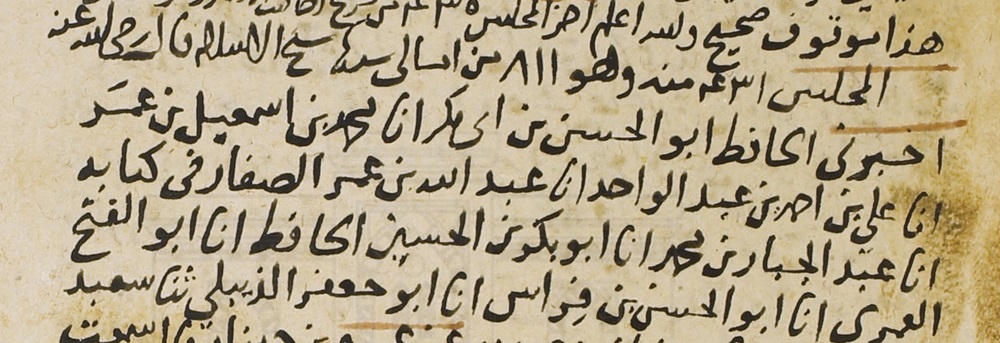 هذا موقوف صحيح والله اعلم اخر المجلس
المجلس منه وهو ٨١١ من امالى شيخ الاسلام رضي الله عنه
اخبرنى الحافظ ابو الحسن بن ابى بكر انا محمد بن اسمعيل بن عمر
انا على بن احمد بن عبد الواحد انا عبد الله بن عمر الصفار فى كتابه
انا عبد الجبار بن محمد انا ابو بكر بن الحسين الحافظ انا ابو الفتح
العمرى انا ابو الحسن بن فراس انا ابو جعفر الديبلى ثنا سعيد